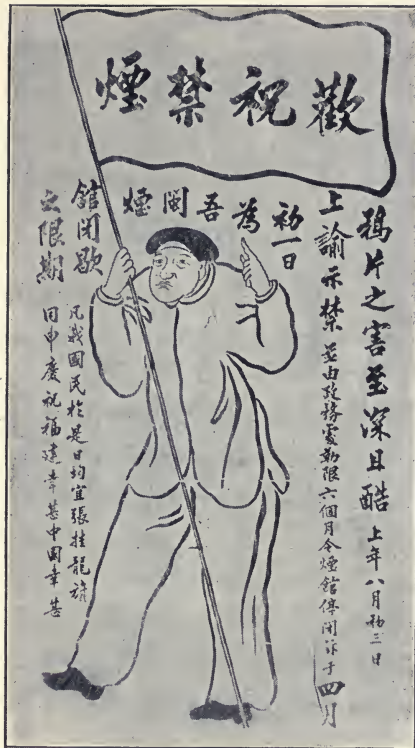 歡祝禁煙
鴉片之害至深且酷上年八月初三日
上諭示禁並由政務處勒限六個月令煙館停閉訴于四月
初一日
為吾閩煙
館閉歇
之限期
凡我國民於是日均宜張挂龍旂
同申慶祝福建幸甚中国幸甚